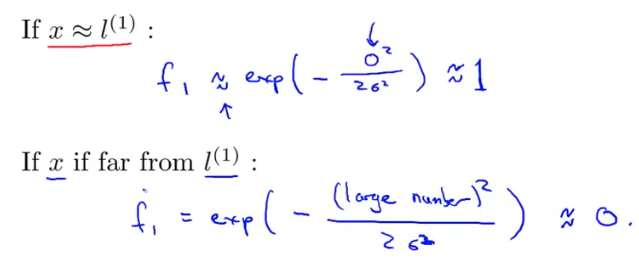 If x ≈ l⁽¹⁾ :
f₁ ≈ exp(− 0²/2σ²) ≈ 1
If x if far from l⁽¹⁾ :
f₁ = exp(− (large number)²/2σ²) ≈ 0.